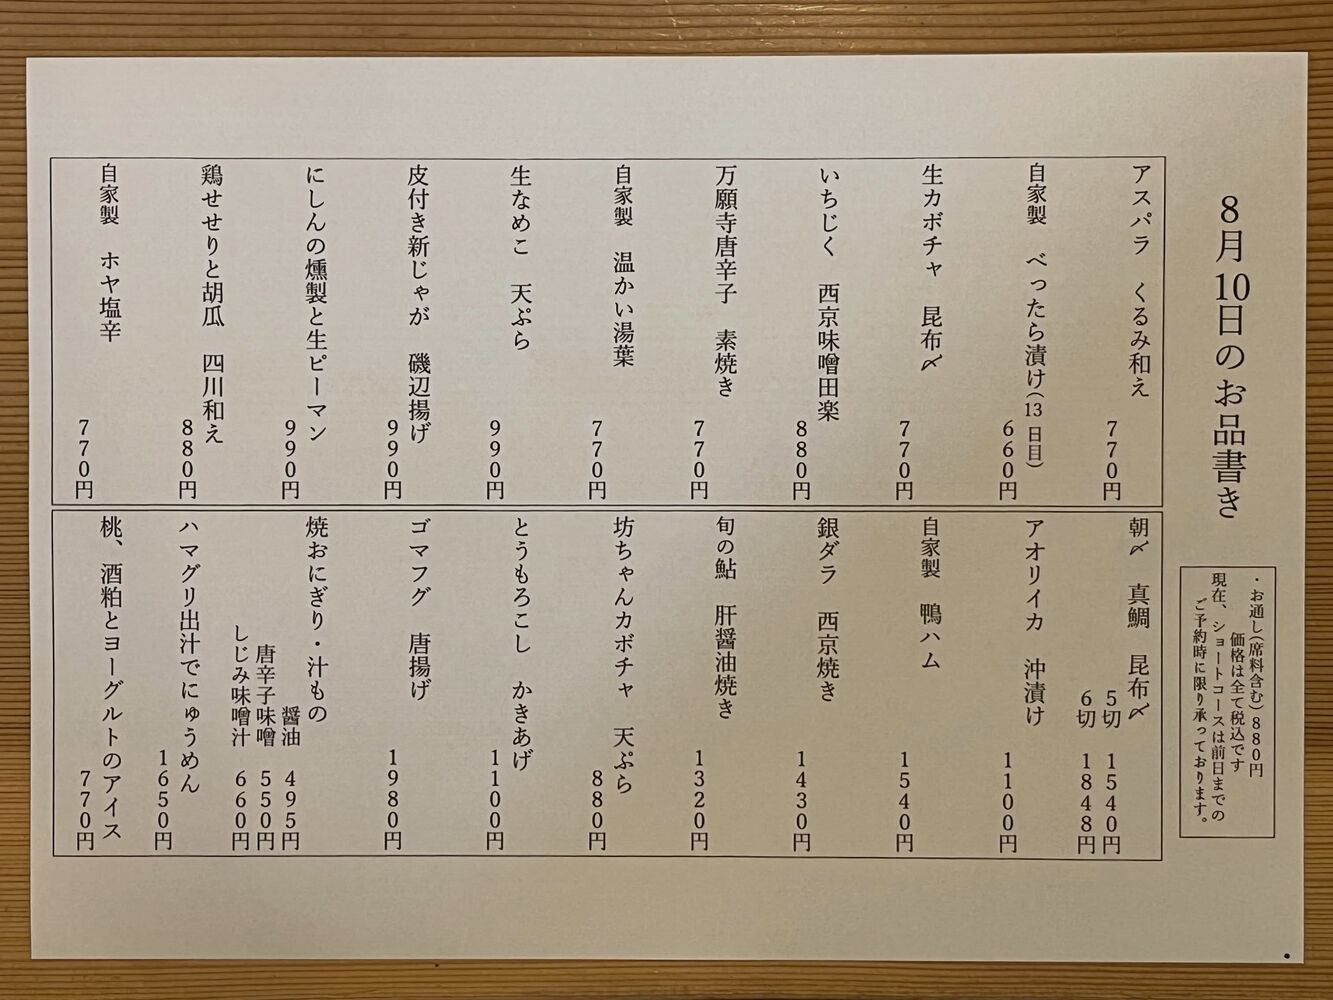 8月10日のお品書き
・お通し(席料含む)880円
価格は全て税込です
現在、ショートコースは前日までの
ご予約時に限り承っております。
アスパラ　くるみ和え
770円
自家製　べったら漬け(13日目)
660円
生カボチャ　昆布〆
770円
いちじく　西京味噌田楽
880円
万願寺唐辛子　素焼き
770円
自家製　温かい湯葉
770円
生なめこ　天ぷら
990円
皮付き新じゃが　磯辺揚げ
990円
にしんの燻製と生ピーマン
990円
鶏せせりと胡瓜　四川和え
880円
自家製　ホヤ塩辛
770円
朝〆　真鯛　昆布〆
5切　1540円
6切　1848円
アオリイカ　沖漬け
1100円
自家製　鴨ハム
1540円
銀ダラ　西京焼き
1430円
旬の鮎　肝醤油焼き
1320円
坊ちゃんカボチャ　天ぷら
880円
とうもろこし　かきあげ
1100円
ゴマフグ　唐揚げ
1980円
焼おにぎり・汁もの
醤油　495円
唐辛子味噌　550円
しじみ味噌汁　660円
ハマグリ出汁でにゅうめん
1650円
桃、酒粕とヨーグルトのアイス
770円